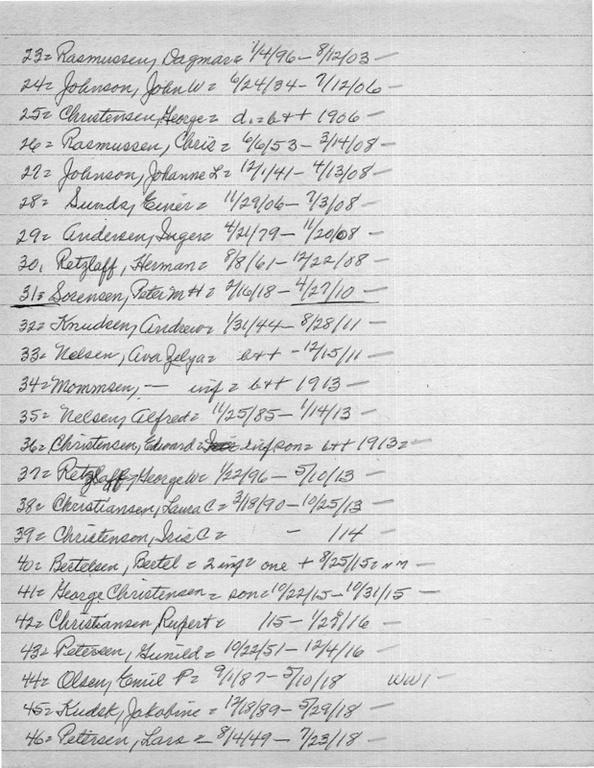 23= Rasmussen, Dagmar= 1/4/96 - 8/12/03 -
24= Johnson, John W= 6/24/34 - 7/12/06 -
25= Christensen, George= d.= b++ 1906 -
26= Rasmussen, Chris= 6/6/53 - 3/14/08 -
27= Johnson, Johanne L= 12/1/41 - 4/13/08 -
28= Sunds, Einer= 11/29/06 - 7/3/08 -
29= Andersen, Inger= 4/21/79 - 11/20/08 -
30, Retzlaff, Herman= 8/8/61 - 12/22/08 -
31= Sorensen, Peter M H= 2/16/18 - 4/27/10 -
32= Knudsen, Andrew= 1/31/44 - 8/28/11 -
33= Nelsen, Ava Jelya= b++ - 12/15/11 -
34= Mommsen, - inf= b++ 1913 -
35= Nelsen, Alfred= 11/25/85 - 1/14/13 -
36= Christensen, Edward= inf son= b++ 1913= -
37= Retzlaff, George W= 1/22/96 - 5/10/13 -
38= Christiansen, Laura C= 3/18/90 - 10/25/13 -
39= Christenson, Iris C= - 114 -
40= Bertelsen, Bertel= 2 inf= one + 8/25/15= NM -
41= George Christensen= son= 10/22/15 - 10/31/15 -
42= Christiansen, Rupert= 115 - 1/29/16 -
43= Petersen, Gunild= 10/22/51 - 12/4/16 -
44= Olsen, Emil P= 9/1/87 - 5/10/18 WW1 -
45= Kudsk, Jakobine= 12/18/89 - 5/29/18 -
46= Petersen, Lars= 8/4/49 - 7/23/18 -